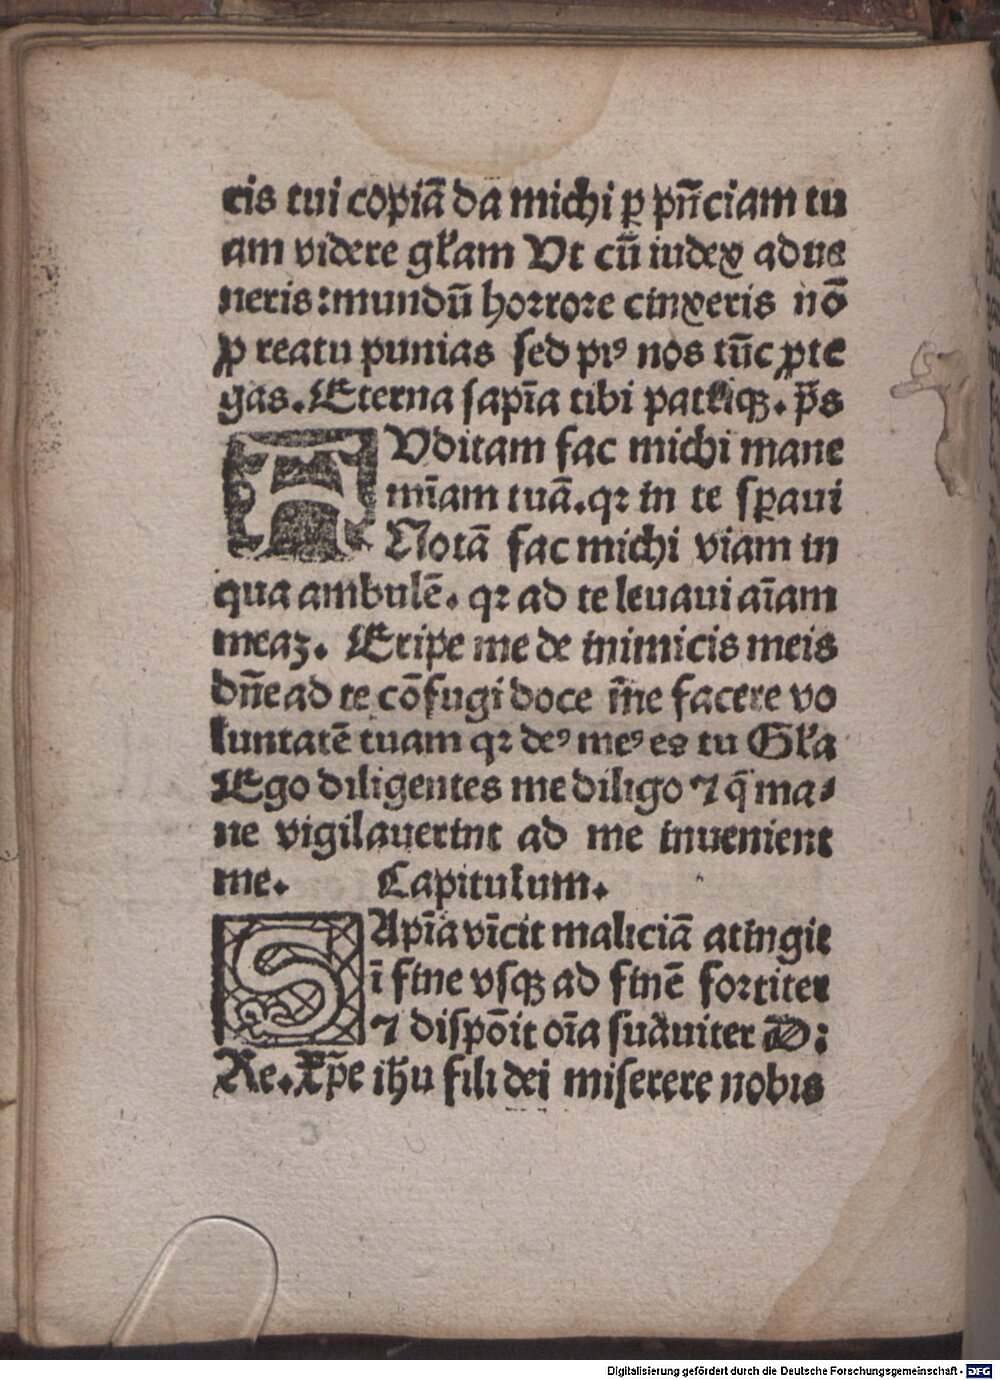 cis tui copiā da michi ꝑ pn̄ciam tu
am videre gl'am Vt cū iudex adue
neris: mundū horrore cinxeris nō
ꝓ reatu punias sed piꝰ nos tūc ꝓte
gas. Eterna sapīa tibi patriqꝫ. p̄s
AVditam fac michi mane
mīam tuā. qꝛ in te sꝑaui
Notā fac michi viam in
qua ambulē. qꝛ ad te leuaui aīam
meaꝫ. Eripe me de inimicis meis
dn̄e ad te cōfugi doce m̄e facere vo
luntatē tuam qꝛ deꝰ meꝰ es tu Gl'a
Ego diligentes me diligo ⁊ q̄ ma⸗
ne vigilauerint ad me inuenient
me. Capitulum.
SApīa vīcit maliciā atingit
ī fine vsqꝫ ad finē fortiter
⁊ dispōit oīa suauiter
Re. Xp̄e ih̄u fili dei miserere nobis
Digitalisierung gefördert durch die Deutsche Forschungsgemeinschaft - DFG